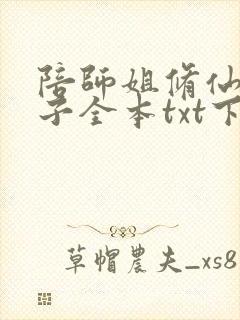 陪師姐脩仙
子全本txt下
草帽農夫_xs8